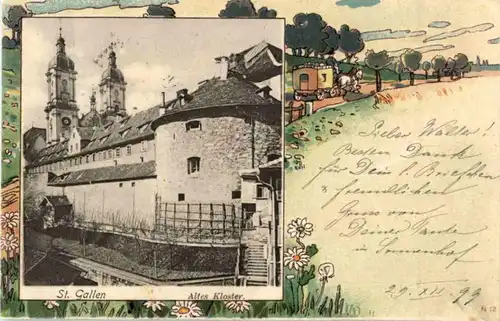 Lieber Walter!
Besten Dank
für Dein l. Briefchen
& freundlichen
Gruss von
Deiner Tante
in Sonnenhof
29. XII. 99
St. Gallen
Altes Kloster.